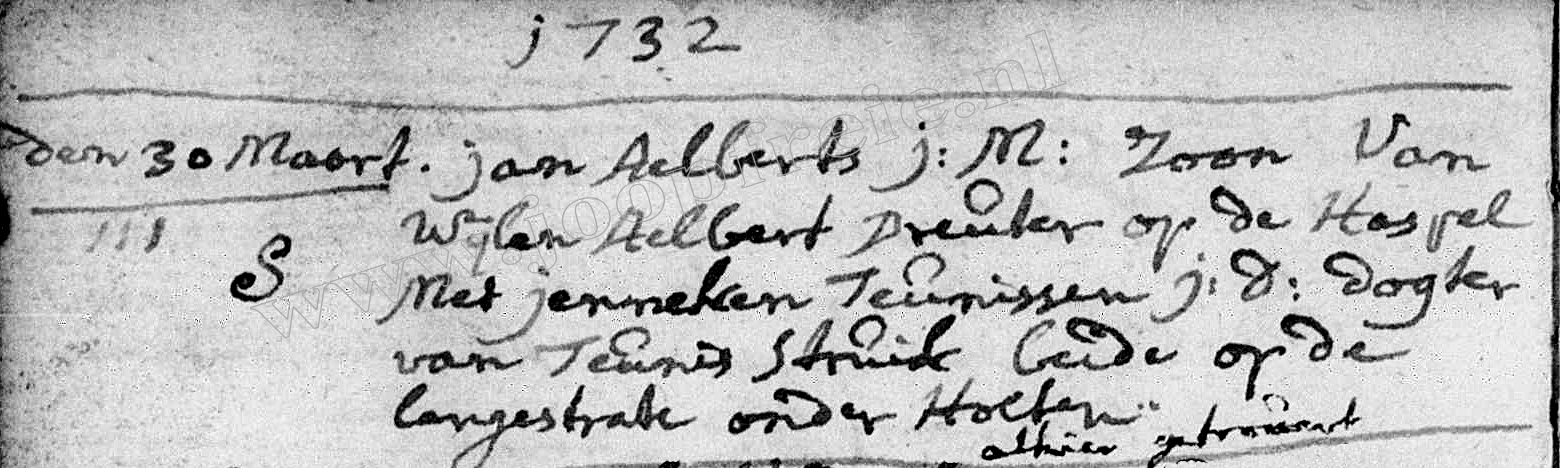 j732
den 30 Maart. jan Aelberts j: M: Zoon Van
Wylen Aelbert Dreuter op de Haspel
111
S
Met jenneken Teunissen j: D: dogter
van Teunis Struik beide op de
langestrate onder Holten
alhier getrouwt
www.joopfreie.nl